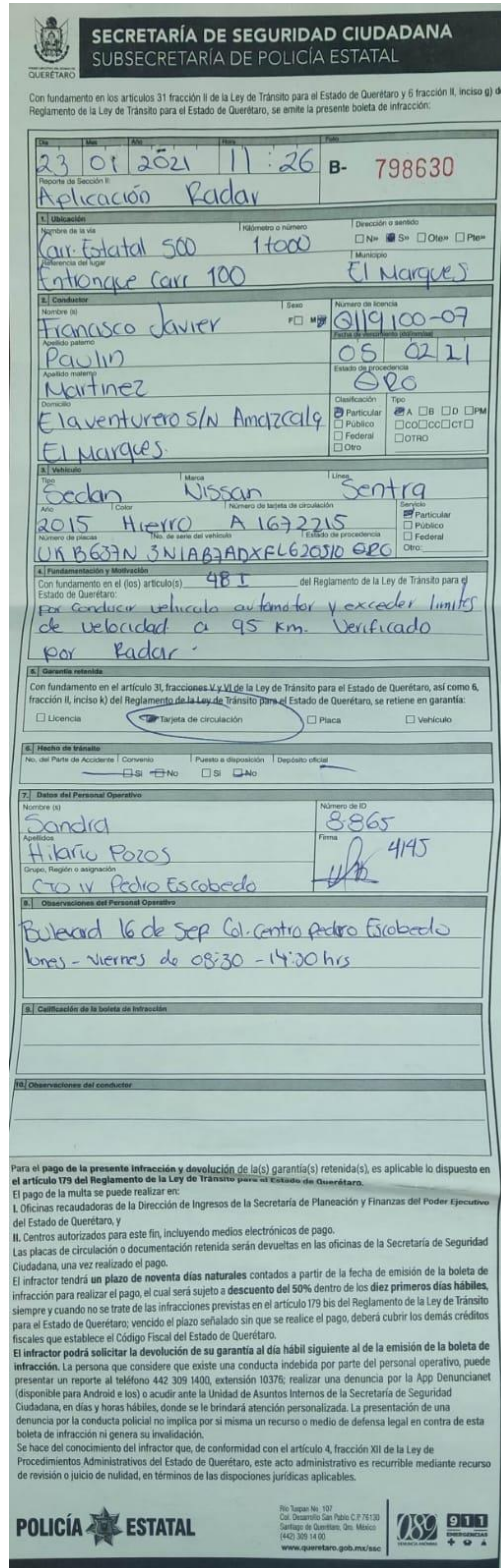 QUERÉTARO
SECRETARÍA DE SEGURIDAD CIUDADANA
SUBSECRETARÍA DE POLICÍA ESTATAL
Con fundamento en los artículos 31 fracción II de la Ley de Tránsito para el Estado de Querétaro y 6 fracción II, inciso g) d
Reglamento de la Ley de Tránsito para el Estado de Querétaro, se emite la presente boleta de infracción:
Día Mes Año Hora Folio
23 01 2021 11:26 B- 798630
Reporte de Sección II:
Aplicación Radar
1. Ubicación
Nombre de la vía Kilómetro o número Dirección o sentido
Carr. Estatal 500 1+000 N» S» Ote» Pte»
Referencia del lugar Municipio
Entronque Carr 100 El Marques
2. Conductor
Nombre (s) Sexo Número de licencia
Francisco Javier F M Q119100-07
Apellido paterno
Paulin 05 02 21
Apellido materno Estado de procedencia
Martinez QRO
Domicilio Clasificación Tipo
El aventurero S/N Amazcala Particular A B D PM
Público CO CC CT
El Marques. Federal OTRO
Otro
3. Vehículo
Tipo Marca Línea
Sedan Nissan Sentra
Año Color Número de tarjeta de circulación Servicio
2015 Hierro A 1672215 Particular
Público
Número de placas No. de serie del vehículo Estado de procedencia Federal
UKB637N 3N1AB7ADXFL620510 QRO Otro:
4. Fundamentación y Motivación
Con fundamento en el (los) artículo(s) 48 I del Reglamento de la Ley de Tránsito para el
Estado de Querétaro:
por conducir vehiculo automotor y exceder limites
de velocidad a 95 Km. Verificado
por Radar.
5. Garantía retenida
Con fundamento en el artículo 31, fracciones V y VI de la Ley de Tránsito para el Estado de Querétaro, así como 6,
fracción II, inciso k) del Reglamento de la Ley de Tránsito para el Estado de Querétaro, se retiene en garantía:
Licencia Tarjeta de circulación Placa Vehículo
6. Hecho de tránsito
No. del Parte de Accidente Convenio Puesto a disposición Depósito oficial
Si No Si No
7. Datos del Personal Operativo
Nombre (s) Número de ID
Sandra 8865
Apellidos Firma
Hilario Pozos 4145
Grupo, Región o asignación
CTO IV Pedro Escobedo
8. Observaciones del Personal Operativo
Bulevard 16 de Sep Col. Centro Pedro Escobedo
lunes - viernes de 08:30 - 14:30 hrs
9. Calificación de la boleta de Infracción
10. Observaciones del conductor
Para el pago de la presente infracción y devolución de la(s) garantía(s) retenida(s), es aplicable lo dispuesto en
el artículo 179 del Reglamento de la Ley de Tránsito para el Estado de Querétaro.
El pago de la multa se puede realizar en:
I. Oficinas recaudadoras de la Dirección de Ingresos de la Secretaría de Planeación y Finanzas del Poder Ejecutivo
del Estado de Querétaro, y
II. Centros autorizados para este fin, incluyendo medios electrónicos de pago.
Las placas de circulación o documentación retenida serán devueltas en las oficinas de la Secretaría de Seguridad
Ciudadana, una vez realizado el pago.
El infractor tendrá un plazo de noventa días naturales contados a partir de la fecha de emisión de la boleta de
infracción para realizar el pago, el cual será sujeto a descuento del 50% dentro de los diez primeros días hábiles,
siempre y cuando no se trate de las infracciones previstas en el artículo 179 bis del Reglamento de la Ley de Tránsito
para el Estado de Querétaro; vencido el plazo señalado sin que se realice el pago, deberá cubrir los demás créditos
fiscales que establece el Código Fiscal del Estado de Querétaro.
El infractor podrá solicitar la devolución de su garantía al día hábil siguiente al de la emisión de la boleta de
infracción. La persona que considere que existe una conducta indebida por parte del personal operativo, puede
presentar un reporte al teléfono 442 309 1400, extensión 10376; realizar una denuncia por la App Denuncianet
(disponible para Android e Ios) o acudir ante la Unidad de Asuntos Internos de la Secretaría de Seguridad
Ciudadana, en días y horas hábiles, donde se le brindará atención personalizada. La presentación de una
denuncia por la conducta policial no implica por si misma un recurso o medio de defensa legal en contra de esta
boleta de infracción ni genera su invalidación.
Se hace del conocimiento del infractor que, de conformidad con el artículo 4, fracción XII de la Ley de
Procedimientos Administrativos del Estado de Querétaro, este acto administrativo es recurrible mediante recurso
de revisión o juicio de nulidad, en términos de las dispociones jurídicas aplicables.
POLICÍA ESTATAL
Río Tuxpan No. 107
Col. Desarrollo San Pablo C.P. 76130
Santiago de Querétaro, Qro. México
(442) 309 14 00
www.queretaro.gob.mx/ssc
089
911
EMERGENCIAS